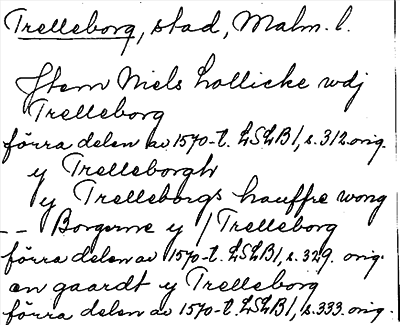 Trelleborg, stad, Malm. l.
Jtem Niels Lollicke wdj
Trelleborg
förra delen av 1570-t. LSLB1, s.312 orig.
y Trelleborgh
y Trelleborgs hauffre wong
-- Borgerne y / Trelleborg
förra delen av 1570-t. LSLB1, s.329. orig.
en gaardt y Trelleborg
förra delen av 1570-t. LSLB1, s.333. orig.